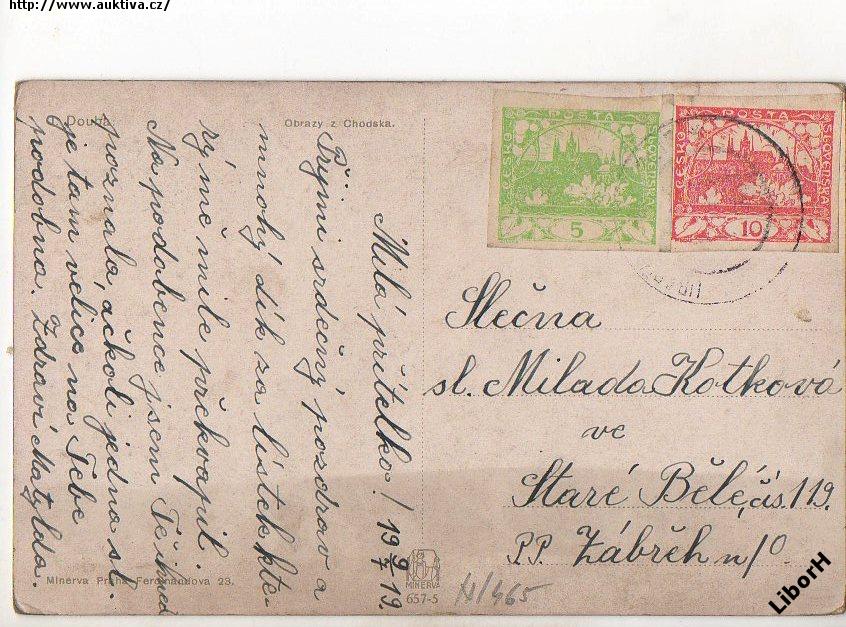 http://www.auktiva.cz/
Douba
Obrazy z Chodska.
Milá přítelko! 19 9/7 19.
Přijmi srdečný pozdrav a
mnohý dík za lístek, kte-
rý mě mile překvapil.
Na podobence jsem Tě ihned
poznala, ačkoli jedna sl.
je tam velice na Tebe
podobna. Zdraví Matylda.
ČESKO
POŠTA
SLOVENSKÁ
5
ČESKO
POŠTA
SLOVENSKÁ
10
Slečna
sl. Milada Kotková
ve
Staré Bělé, čís. 119.
P.P. Zábřeh n/O.
Minerva Praha Ferdinandova 23.
MINERVA
657-5
N/465
LiborH